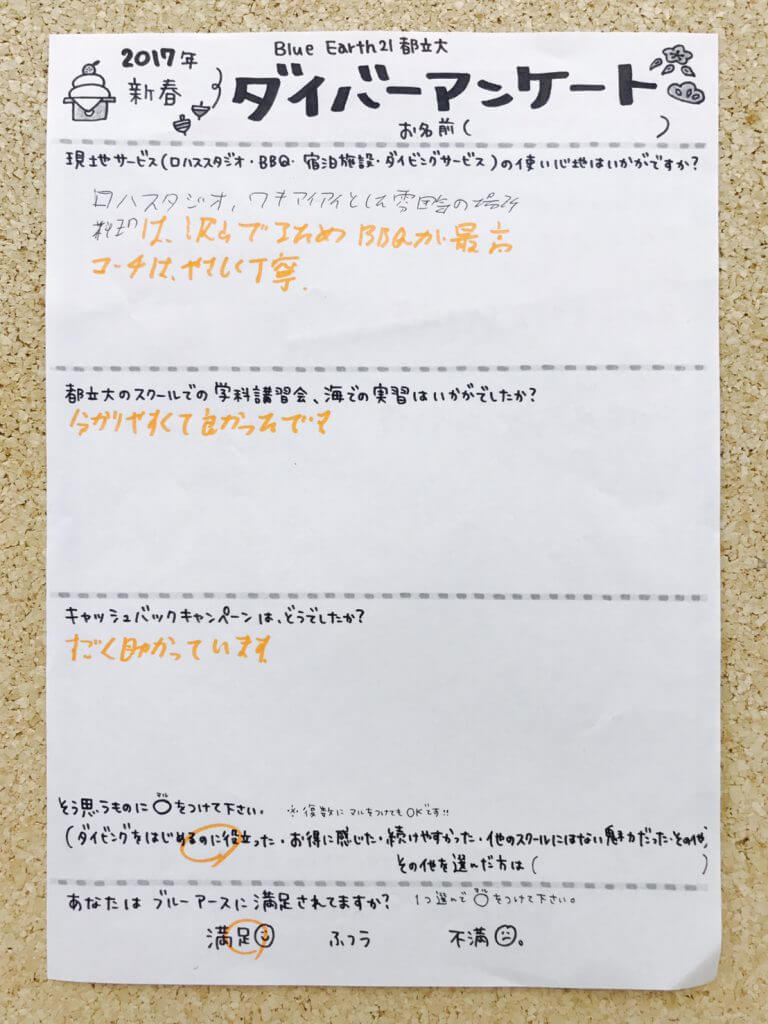 2017年
新春
Blue Earth21 都立大
ダイバーアンケート
お名前( )
現地サービス(ロハススタジオ・BBQ・宿泊施設・ダイビングサービス)の使い心地はいかがですか?
ロハスタジオ、ワキアイアイとした雰囲気の場所
料理は、沢山でるため BBQが最高
コーチは、やさしく丁寧.
都立大のスクールでの学科講習会、海での実習はいかがでしたか?
分かりやすくて良かったです
キャッシュバックキャンペーンは、どうでしたか?
すごく助かっています
そう思うものに○をつけて下さい。 ※複数にマルをつけてもOKです!!
マル
(ダイビングをはじめるのに役立った・お得に感じた・続けやすかった・他のスクールにはない魅力だった・その他)
その他を選んだ方は( )
あなたはブルーアースに満足されてますか? 1つ選んで○をつけて下さい。
満足 ふつう 不満。